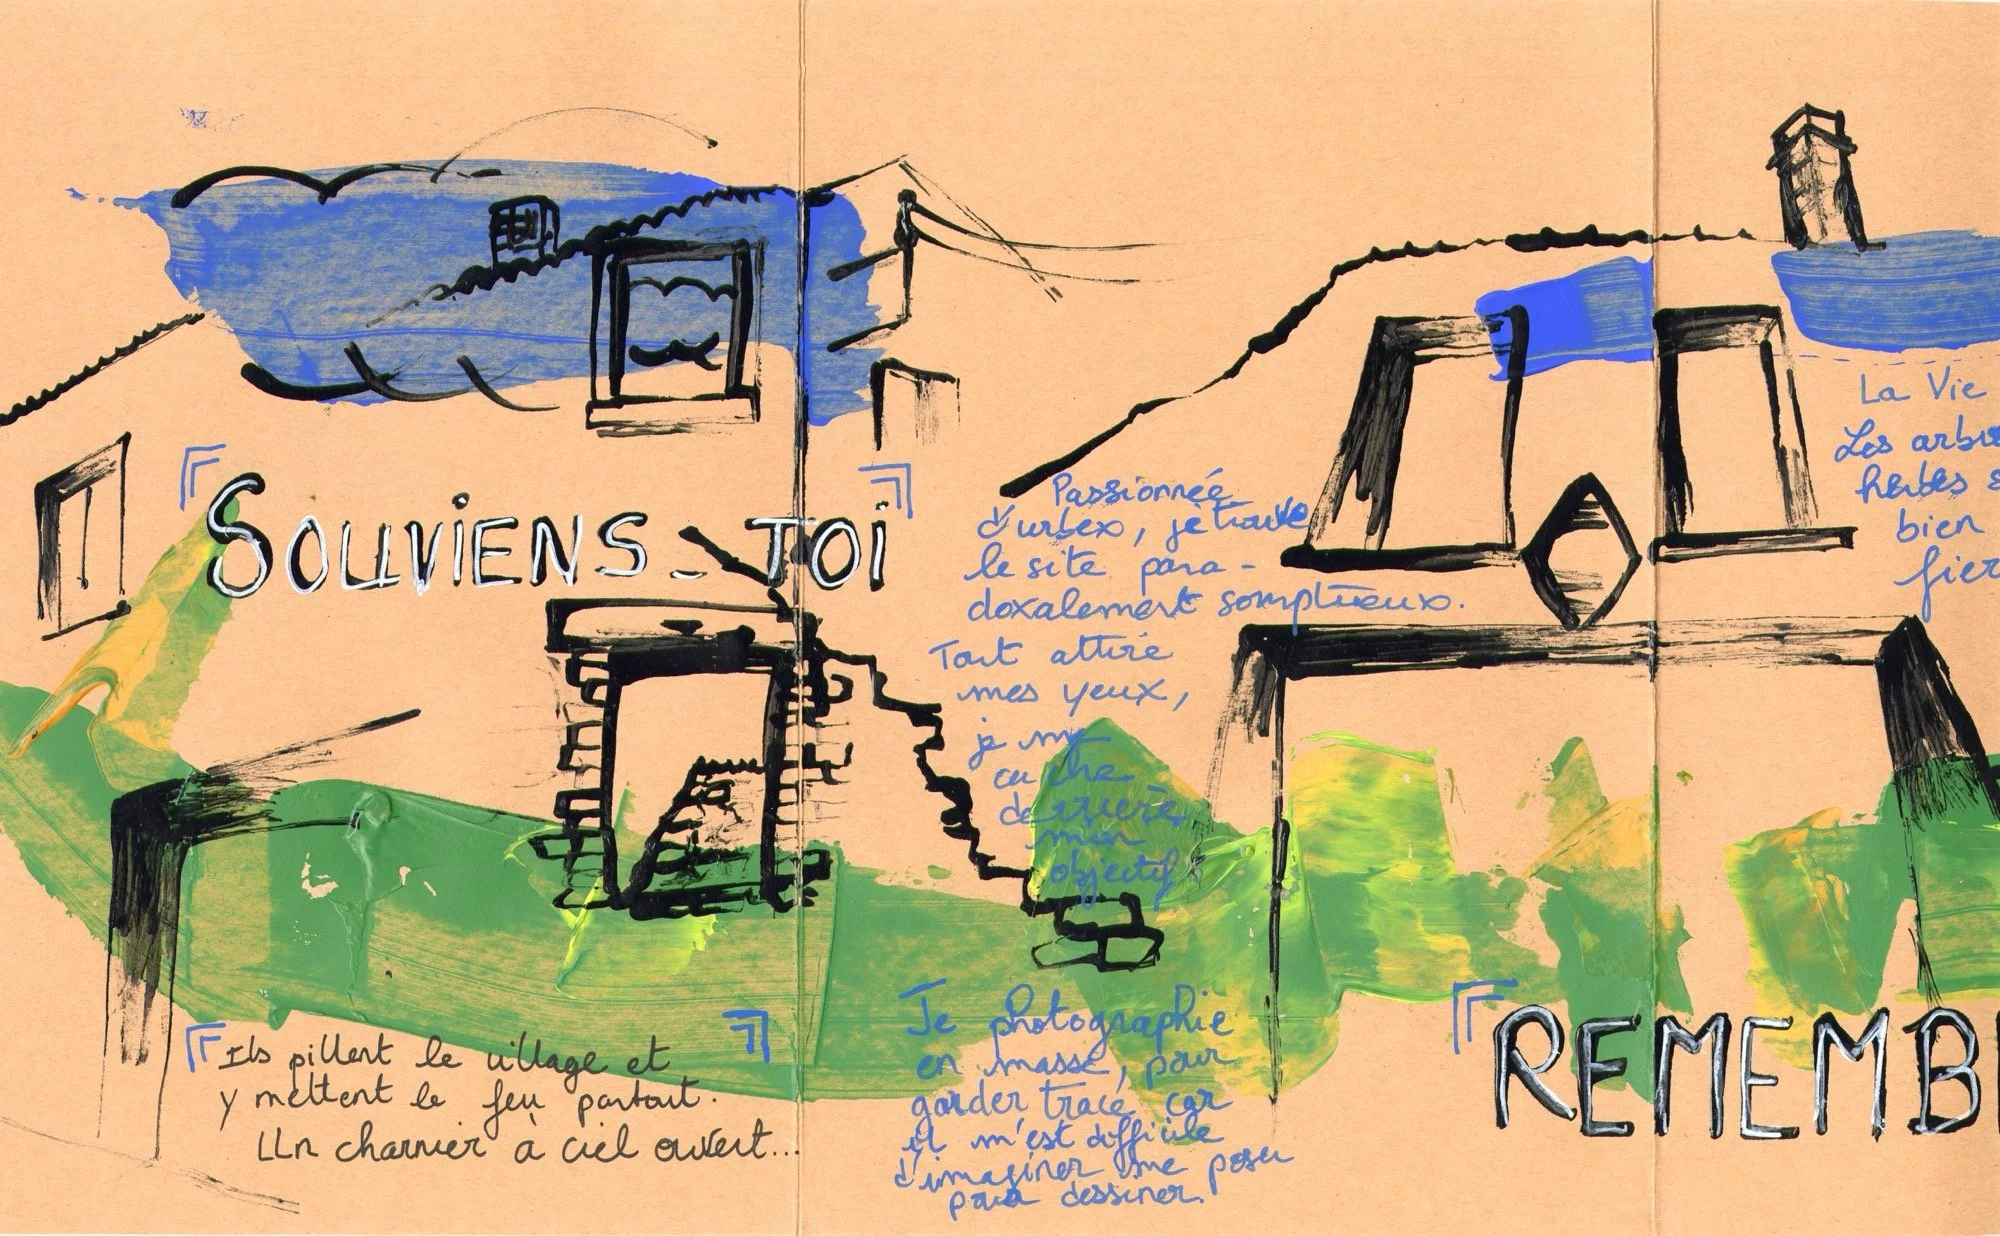 SOUVIENS-TOI
Ils pillent le village et
y mettent le feu partout.
Un charnier à ciel ouvert...
Passionnée
d'urbex, je trouve
le site para-
doxalement somptueux.
Tout attire
mes yeux,
je me
cache
derrière
mon
objectif.
Je photographie
en masse, pour
garder trace, car
il m'est difficile
d'imaginer me poser
pour dessiner.
La Vie
Les arbr
herbes s
bien
fier
REMEMB